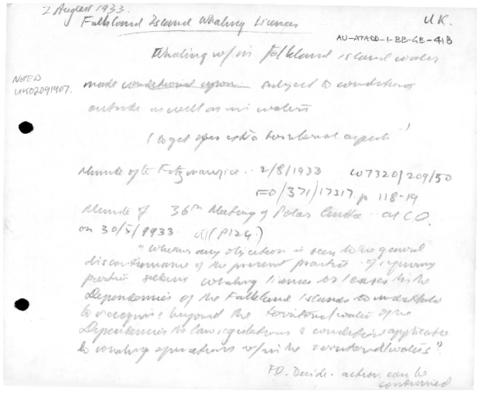 2 August 1933.
U.K.
Falkland Island Whaling Licences
AU-ATADD-1-BB-GB-413
Whaling w/in Falkland island waters
NOTED
UK02091907.
made conditional upon subject to conditions
outside as well as in waters
! to get open extra territorial aspect !
Minute of Fitzmaurice 2/8/1933 W7320/209/50
FO/371/17217 p 118-19
Minute of 36th Meeting of Polar Cttee at CO.
on 30/5/1933 (P124)
"Whether any objection is seen to the general
discontinuance of the present practice of requiring
parties seeking whaling licences or leases for the
Dependencies of the Falkland Islands to undertake
to recognise beyond the territorial waters of the
Dependencies the law, regulations & conditions applicable
to whaling operations w/in the territorial waters".
FO. Decide - action can be
continued